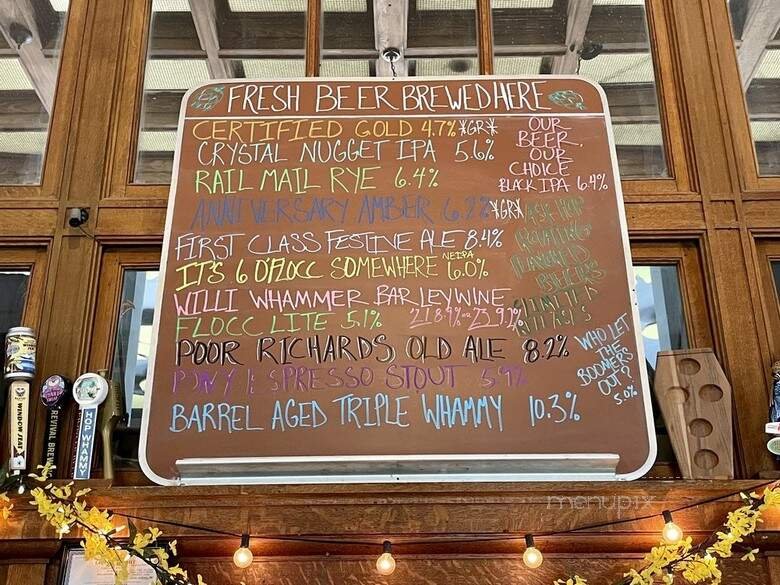 FRESH BEER BREWED HERE
CERTIFIED GOLD 4.7% *GR*
CRYSTAL NUGGET IPA 5.6%
RAIL MAIL RYE 6.4%
ANNIVERSARY AMBER 6.2% *GR*
FIRST CLASS FESTIVE ALE 8.4%
IT'S 6 O'FLOCC SOMEWHERE NEIPA 6.0%
WILLI WHAMMER BARLEYWINE
'21 8.9% '23 9.2%
FLOCC LITE 5.1%
POOR RICHARDS OLD ALE 8.2%
PONY ESPRESSO STOUT 5.9%
BARREL AGED TRIPLE WHAMMY 10.3%
OUR
BEER,
OUR
CHOICE
BLACK IPA 6.4%
ASK
ROTATING
FLAVORED
BEERS
LIMITED
WHO LET
THE
BOOMERS
OUT?
5.0%
WINDOW SEAT
REVIVAL BREWING
HOP WHAMMY
menupix